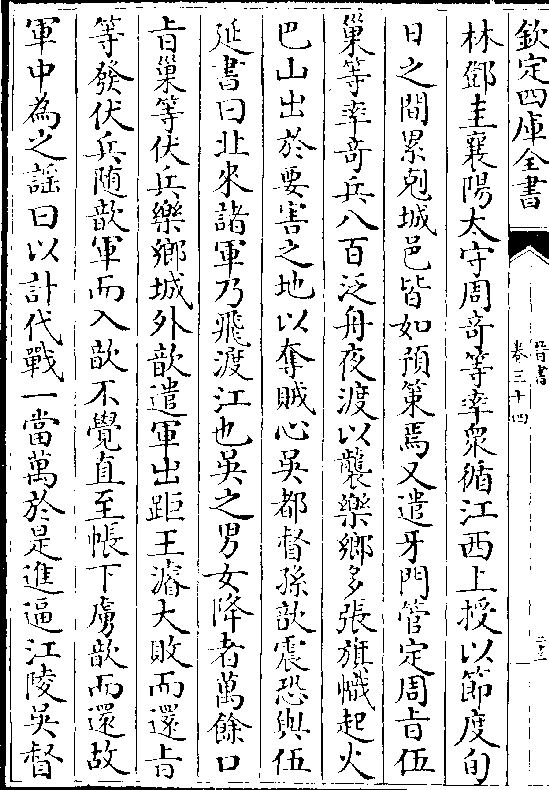 欽定四庫全書
晉書
卷三十四
二十二
林鄧圭襄陽太守周竒等率衆循江西上授以節度旬
日之間累剋城邑皆如預策焉又遣牙門管定周旨伍
巢等率竒兵八百泛舟夜渡以襲樂鄉多張旗幟起火
巴山出於要害之地以奪賊心吳都督孫歆震恐與伍
延書曰北來諸軍乃飛渡江也吳之男女降者萬餘口
旨巢等伏兵樂鄉城外歆遣軍出距王濬大敗而還旨
等發伏兵随歆軍而入歆不覺直至帳下虜歆而還故
軍中為之謡曰以計代戰一當萬於是進逼江陵吳督